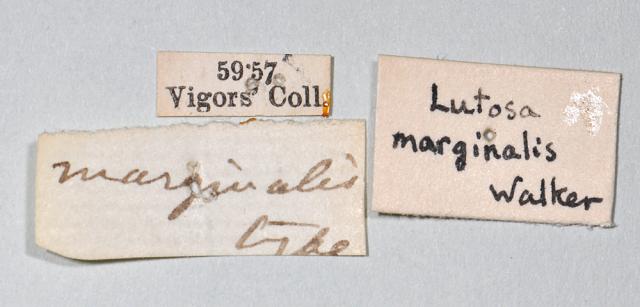 59·57
Vigors' Coll.
marginalis
type
Lutosa
marginalis
Walker